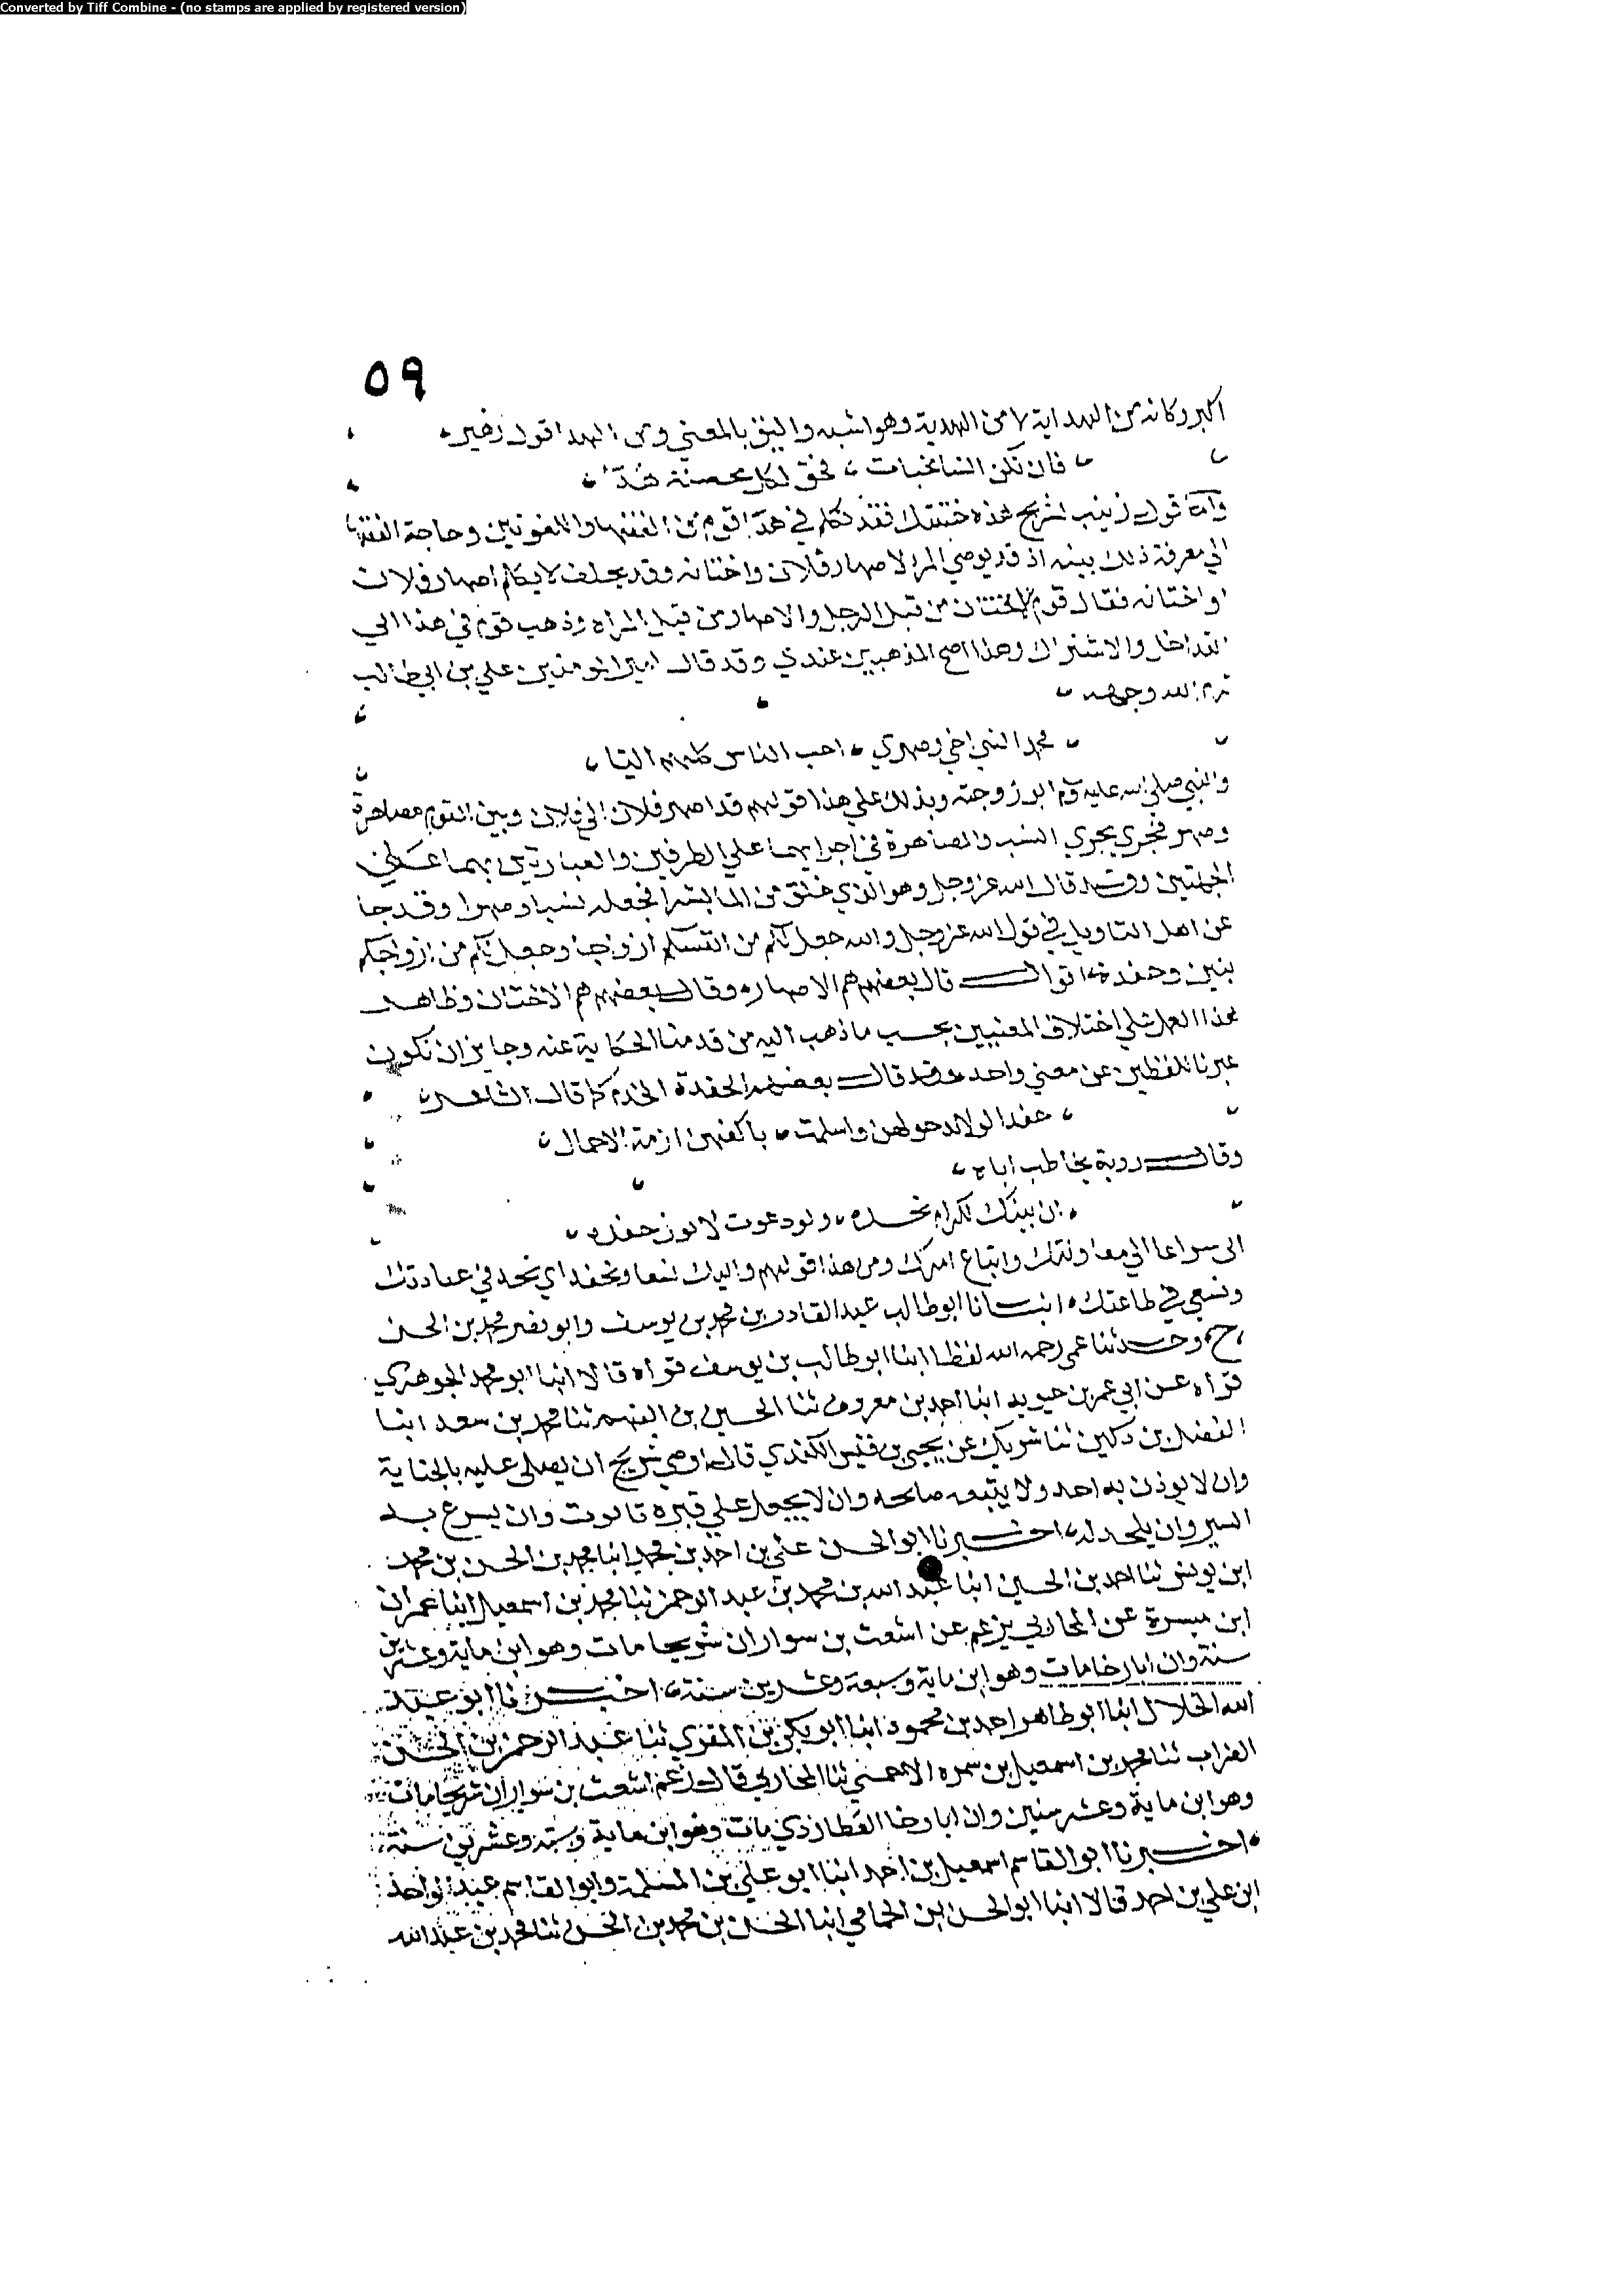 Converted by Tiff Combine - (no stamps are applied by registered version)
٥٩
اكبر وكانه من الهداية لا من الهدية وهو اشبه واليق بالمعني ومن الهدا قول زهير
فان تكن النسا مخبات فحق لكل محصنة هدا
واما قول زينب لشريح هذه ختنتك فقد تكلم في هذا قوم من الفقها واللغويين وحاجة الفقها
الي معرفة ذلك بينه اذ قد يوصي المرء لاصهار فلان واختانه وقد يحلف لا يكلم اصهار فلان
او اختانه فقال قوم الاختان من قبل الرجل والاصهار من قبل المراه وذهب قوم في هذا الي
التداخل والاشتراك وهذا اصح المذهبين عندي وقد قال امير المومنين علي بن ابي طالب
كرم الله وجهه
محمد النبي اخي وصهري احب الناس كلهم اليا
والنبي صلي الله عليه وسلم ابو زوجته وبذلك علي هذا قولهم قد اصهر فلان الي فلان وبين القوم مصاهرة
وصهر فجري مجري النسب والمصاهرة في اجرايهما علي الطرفين والعبارتين بهما علي
الجهتين وقد قال الله عز وجل وهو الذي خلق من الما بشرا فجعله نسبا وصهرا وقد جا
عن اهل التاويل في قول الله عز وجل والله جعل لكم من انفسكم ازواجا وجعل لكم من ازواجكم
بنين وحفدة اقوال قال بعضهم هم الاصهار وقال بعضهم هم الاختان وظاهر
هذا العمل علي اختلاف المعنيين بحسب ما ذهب اليه من قدمنا الحكاية عنه وجايز ان تكون
عبرنا بلفظين عن معني واحد وقد قال بعضهم الحفدة الخدم كما قال الشاعر
حفد الولايد حولهن واسلمت باكفهن ازمة الاجمال
وقال روبة يخاطب اباه
ان بنيك لكرام نجده ولو دعوت لاتوك حفده
اي سراعا الي معاونتك واتباع امرك ومن هذا قولهم واليك نسعا ونحفد اي نجد في عبادتك
ونسعي في طاعتك انبانا ابو طالب عبد القادر بن محمد بن يوسف وابو نصر محمد بن الحسن
ح وحدثنا عمي رحمه الله لفظا انبا ابو طالب بن يوسف قراه قالا انبا ابو محمد الجوهري
قراه عن ابي عمر بن حيويه انبا احمد بن معروف ثنا الحسين بن الفهم ثنا محمد بن سعد ابنا
الفضل بن دكين ثنا شريك عن يحيي بن قيس الكندي قال اوصي شريح ان يصلي عليه بالجناية
وان لا يوذن به احد ولا يتبعه صايحه وان لا يجعل علي قبره ثابوت وان يسرع به
السير وان يلحد له اخبرنا ابو الحسن علي بن احمد بن محمد انبا محمد بن الحسن بن محمد
ابن يونس ثنا احمد بن الحسين انبا عبد الله بن محمد بن عبد الرحمن ثنا محمد بن اسمعيل انبا عمران
ابن ميسرة عن المحاربي يزعم عن اشعث بن سوار ان شريحا مات وهو ابن ماية وعشرين
سنة وان ابا رجا مات وهو ابن ماية وسبعة وعشرين سنة اخبرنا ابو عبد
الله الخلال انبا ابو طاهر احمد بن محمود انبا ابو بكر بن المقري ثنا عبد الرحمن بن الحسن
الضراب ثنا محمد بن اسمعيل بن سمره الاحمسي ثنا المحاربي قال زعم اشعث بن سوار ان شريحا مات
وهو ابن ماية وعشر سنين وان ابا رجا العطاردي مات وهو ابن ماية وسته وعشرين سنة
اخبرنا ابو القاسم اسمعيل بن احمد ابنا ابو علي بن المسلمة وابو القاسم عبد الواحد
ابن علي بن احمد قالا انبا ابو الحسن ابن الحمامي انبا الحسن بن محمد بن الحسن ثنا محمد بن عبد الله